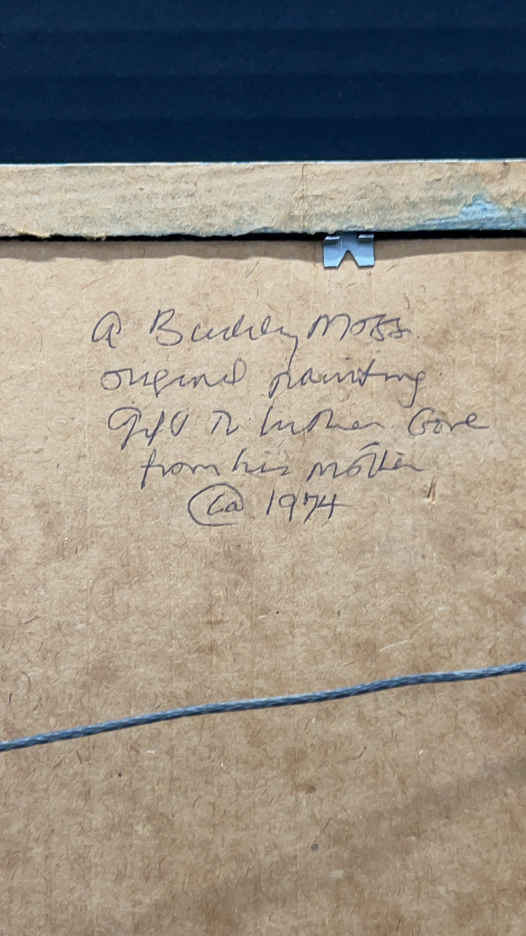 A Buddy Moss
original painting
Gift to Luther Gore
from his mother
Ca 1974